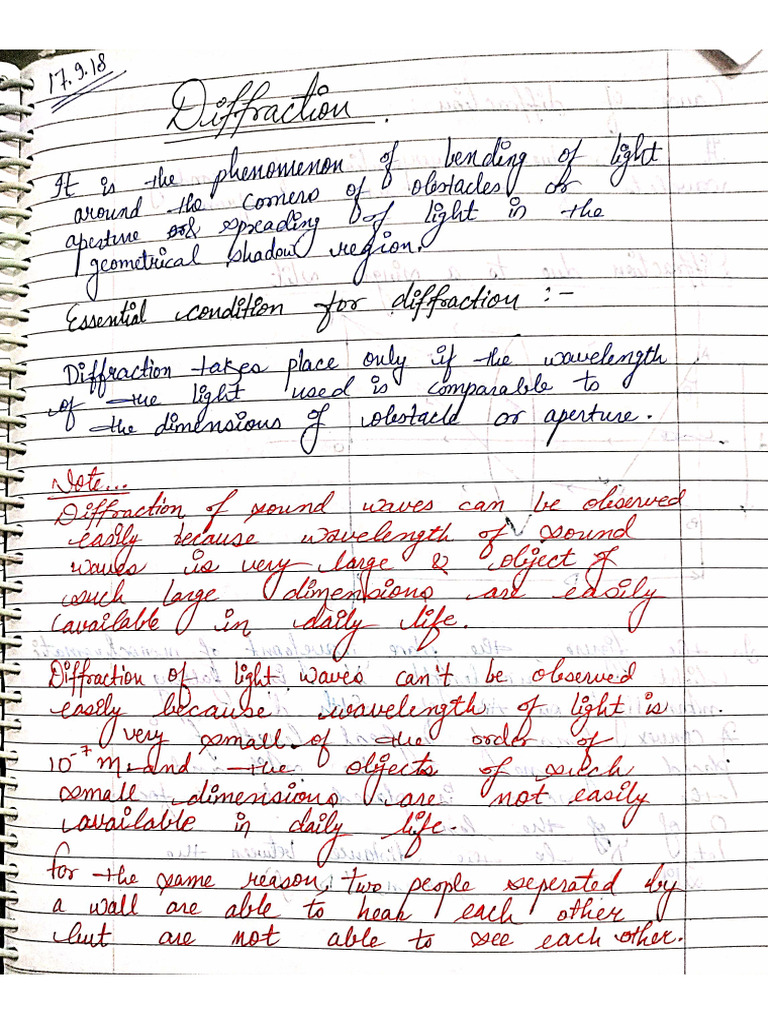 17.9.18
Diffraction.
It is the phenomenon of bending of light
around the corners of obstacles or
aperture & spreading of light in the
geometrical shadow region.
Essential condition for diffraction :-
Diffraction takes place only if the wavelength
of the light used is comparable to
the dimensions of obstacle or aperture.
Note...
Diffraction of sound waves can be observed
easily because wavelength of sound
waves is very large & object of
such large dimensions are easily
available in daily life.
Diffraction of light waves can't be observed
easily because wavelength of light is
very small of the order of
10⁻⁷ m, and the objects of such
small dimensions are not easily
available in daily life.
for the same reason, two people seperated by
a wall are able to hear each other
but are not able to see each other.